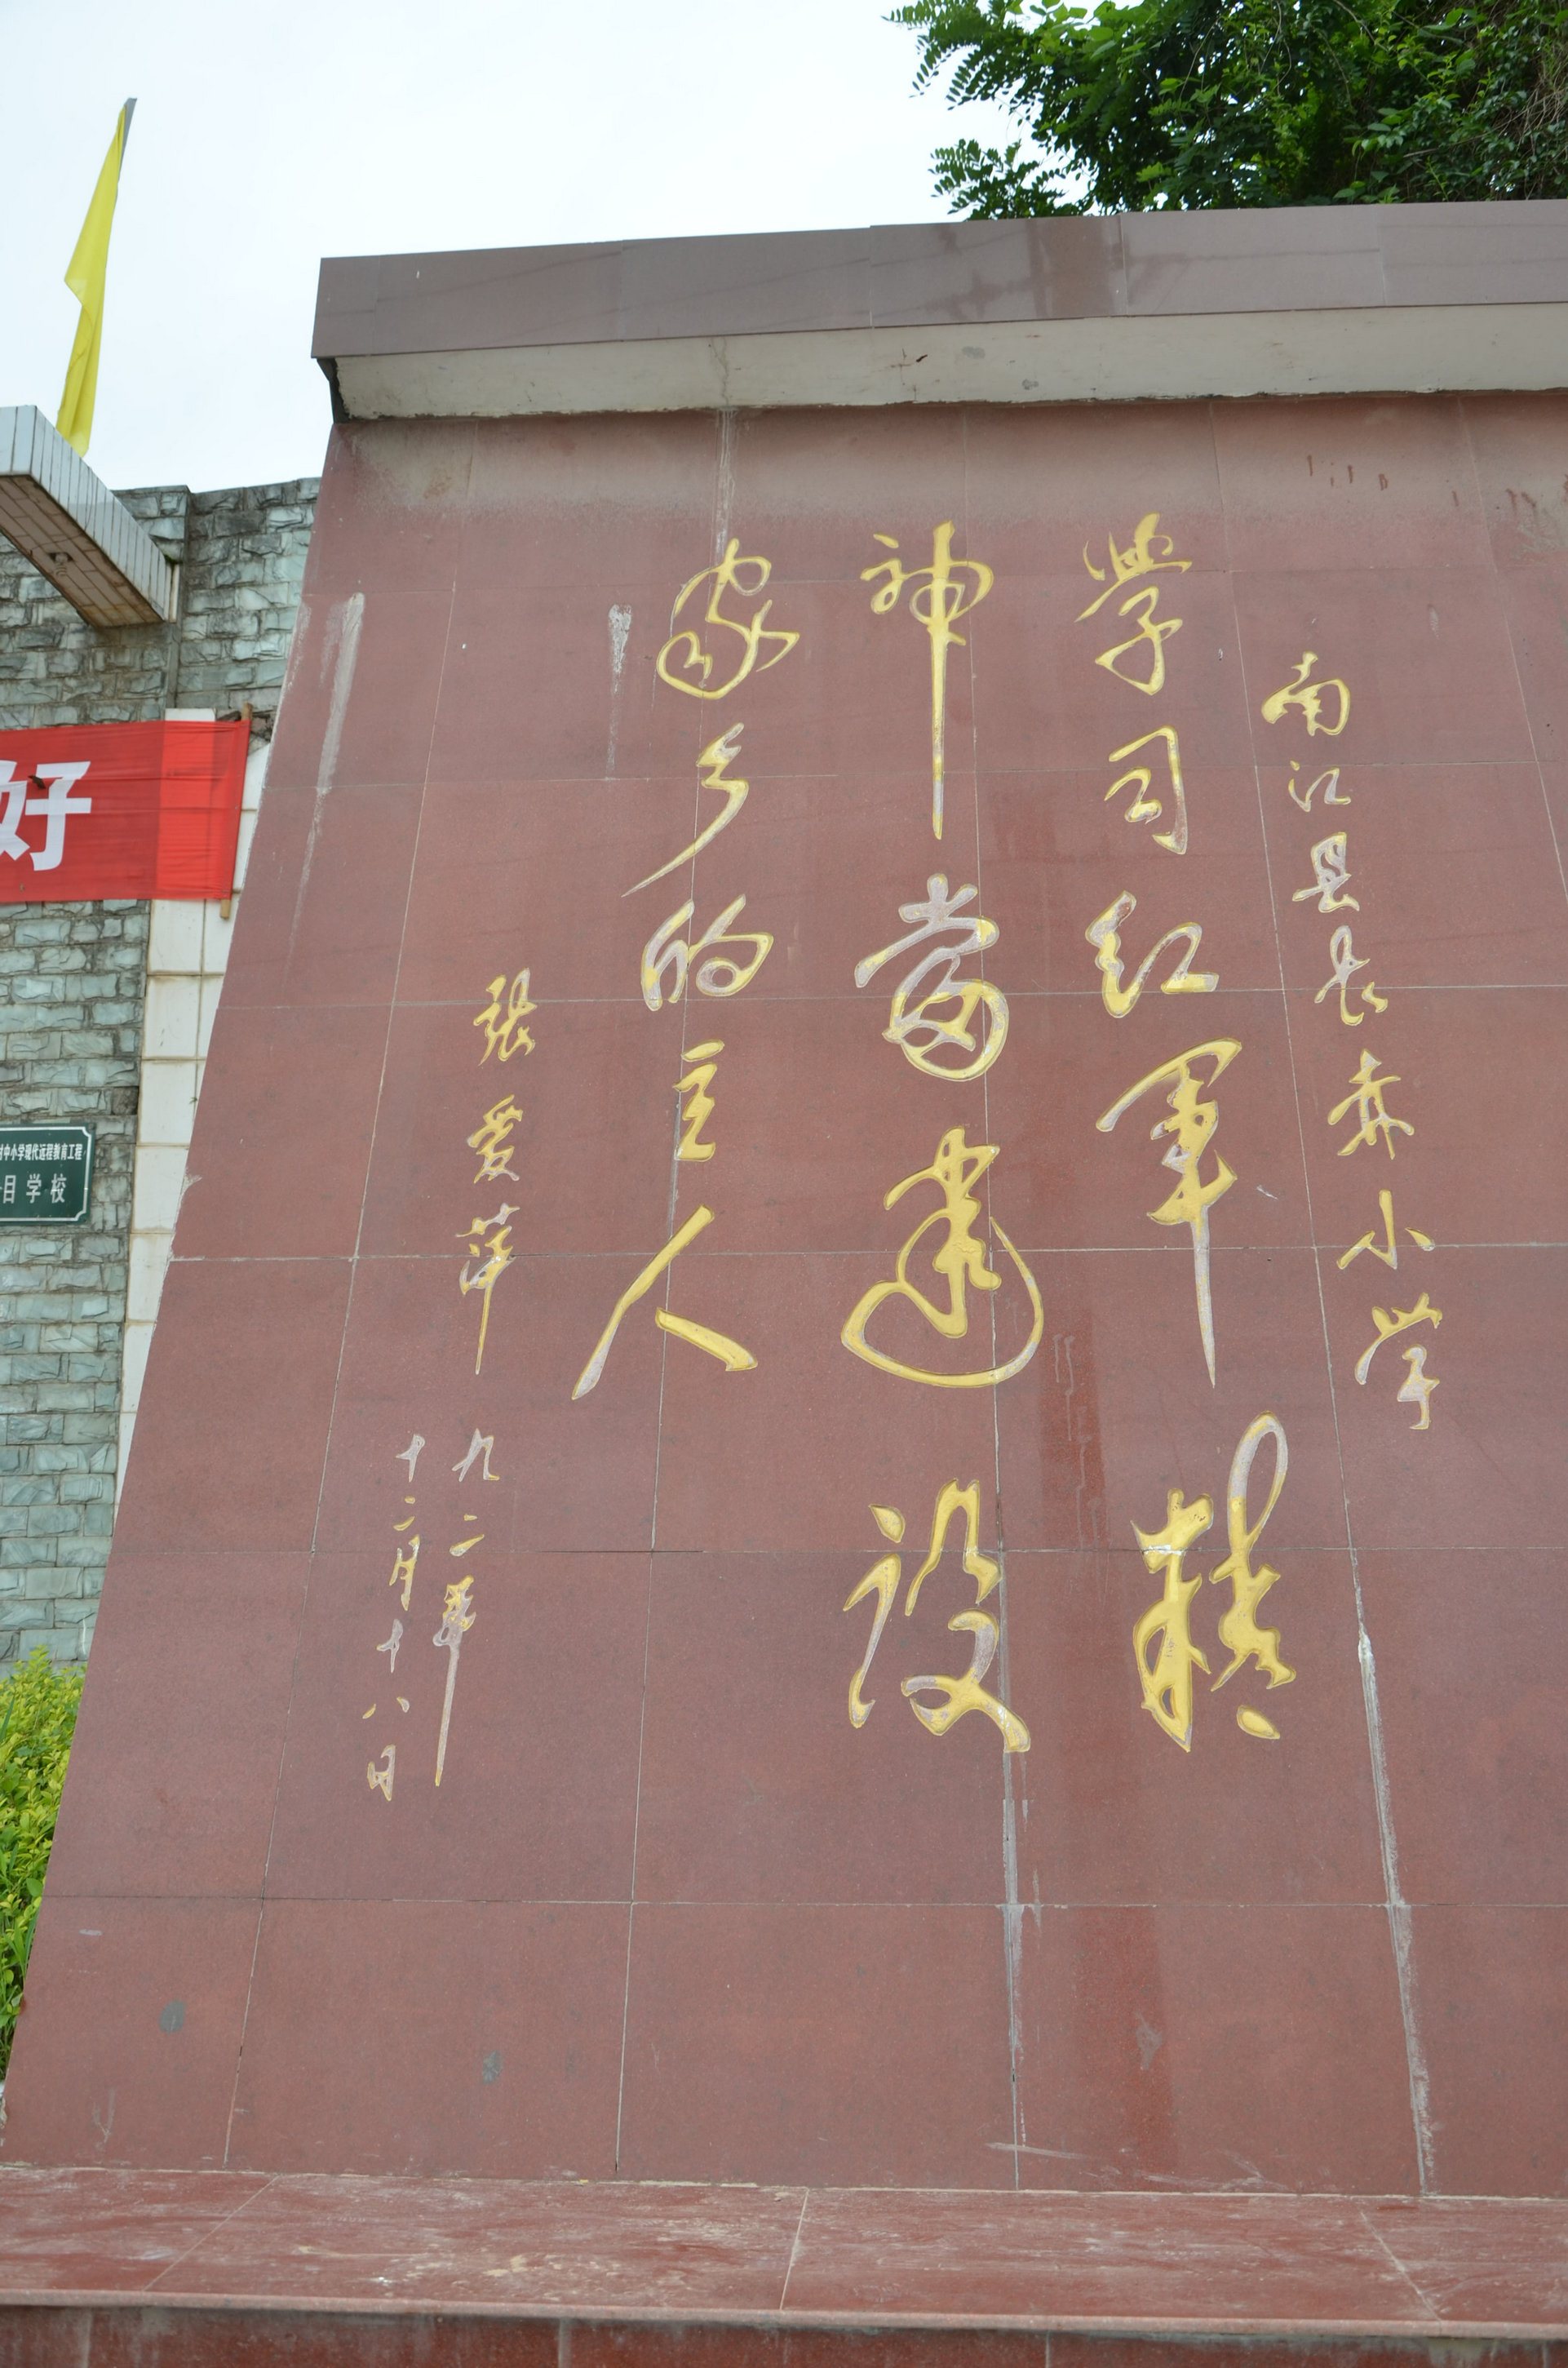 南江县长赤小学
学习红军精
神当建设
家乡的主人
张爱萍
九二年
十二月十八日
好
村中小学现代远程教育工程
目学校